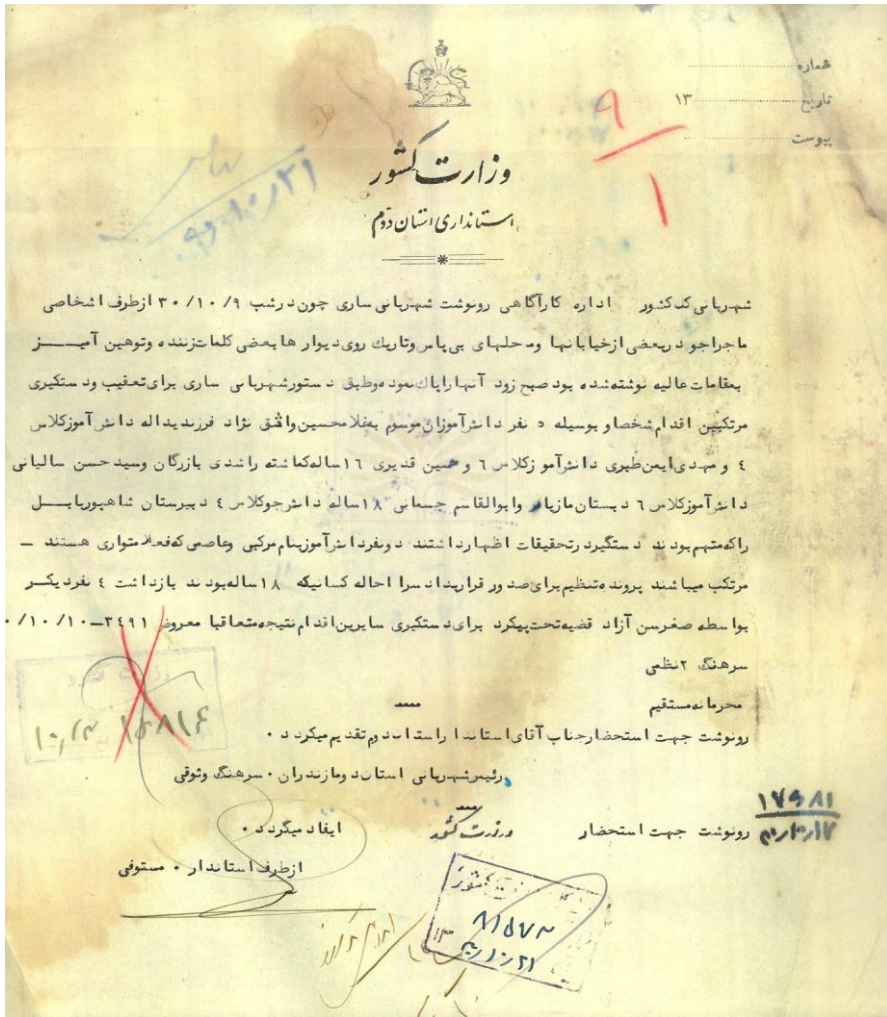 شماره
تاریخ ۱۳
پیوست
۹/۱
وزارت کشور
استانداری استان دوم
شهربانی کل کشور اداره کارآگاهی رونوشت شهربانی ساری چون در شب ۳۰/۱۰/۹ از طرف اشخاصی
ماجراجو در بعضی از خیابانها ومحلهای بی پاس وتاریك روی دیوار ها بعضی کلمات زننده وتوهین آمیز
بمقامات عالیه نوشته شده بود صبح زود آنها را پاك نموده وطبق دستور شهربانی ساری برای تعقیب ودستگیری
مرتکبین اقدام شخصا و بوسیله ٥ نفر دانش آموزان موسوم به غلامحسین واثق نژاد فرزند یداله دانش آموز کلاس
٤ و مهدی ایمن طبری دانش آموز کلاس ٦ و حسین قدیری ١٦ ساله گماشته راشدی بازرگان وسید حسن سالیانی
دانش آموز کلاس ٦ دبستان مازیار وابوالقاسم ١٨ ساله دانش جو کلاس ٤ دبیرستان شاهپور بابل
را که متهم بودند دستگیر در تحقیقات اظهار داشتند دو نفر دانش آموز بنام وعاصمی که فعلا متواری هستند ـ
مرتکب میباشند پرونده تنظیم برای صدور قرار بدادسرا احاله کسانیکه ١٨ ساله بودند بازداشت ٤ نفر دیگر
بواسطه صغر سن آزاد قضیه تحت پیگرد برای دستگیری سایرین اقدام نتیجه متعاقبا معروض ٣٤٩١ـ١٠/١٠/
سرهنگ ٢ نظمی
محرمانه مستقیم
رونوشت جهت استحضار جناب آقای استاندار استان دوم تقدیم میگردد ٠
رئیس شهربانی استان دو مازندران ٠ سرهنگ وثوقی
۱۷۹۸۱
رونوشت جهت استحضار وزارت کشور ایفاد میگردد ٠
از طرف استاندار ٠ مستوفی
۱۵۸۱۴